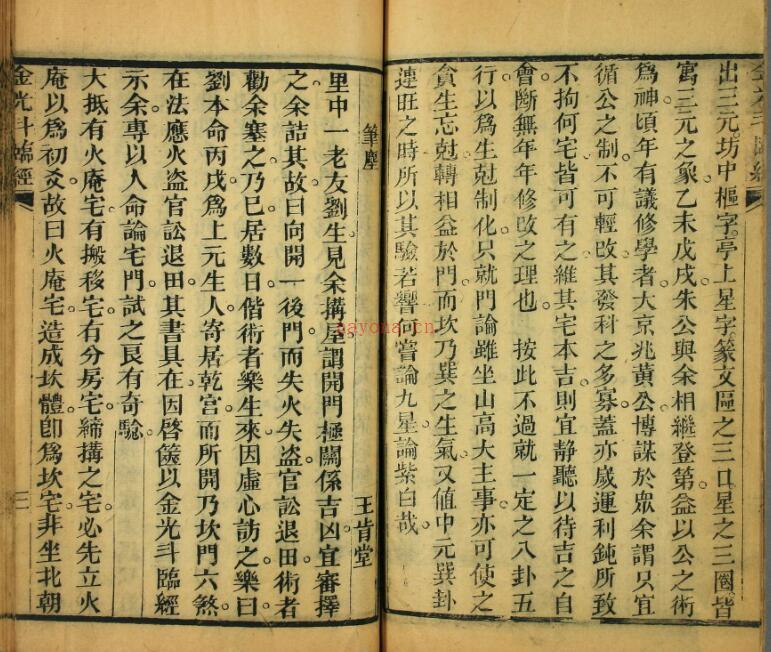 出三元坊中樞字亭上星字篆文區之三口星之三圈皆
寓三元之象乙未戊戌朱公與余相繼登第益以公之術
爲神頃年有議修學者大京兆黃公博謀於眾余謂只宜
循公之制不可輕改其發科之多寡蓋亦歲運利鈍所致
不拘何宅皆可有之維其宅本吉則宜静聽以待吉之自
會斷無年年修改之理也 按此不過就一定之八卦五
行以爲生尅制化只就門論雖坐山高大主事亦可使之
貪生忘尅轉相益於門而坎乃巽之生氣又值中元巽卦
連旺之時所以其驗若響何嘗論九星論紫白哉
筆麈 王肯堂
里中一老友劉生見余搆屋謂開門極關係吉凶宜審擇
之余詰其故曰向開一後門而失火失盜官訟退田術者
勸余塞之乃已居數日偕術者樂生來因虛心訪之樂曰
劉本命丙戌爲上元生人寄居乾宮而所開乃坎門六煞
在法應火盜官訟退田其書具在因啓篋以金光斗臨經
示余專以人命論宅門試之良有奇驗
大抵有火庵宅有搬移宅有分房宅締搆之宅必先立火
庵以爲初爻故曰火庵宅造成坎體卽爲坎宅非坐北朝
金光斗臨經
三
nayona.cn